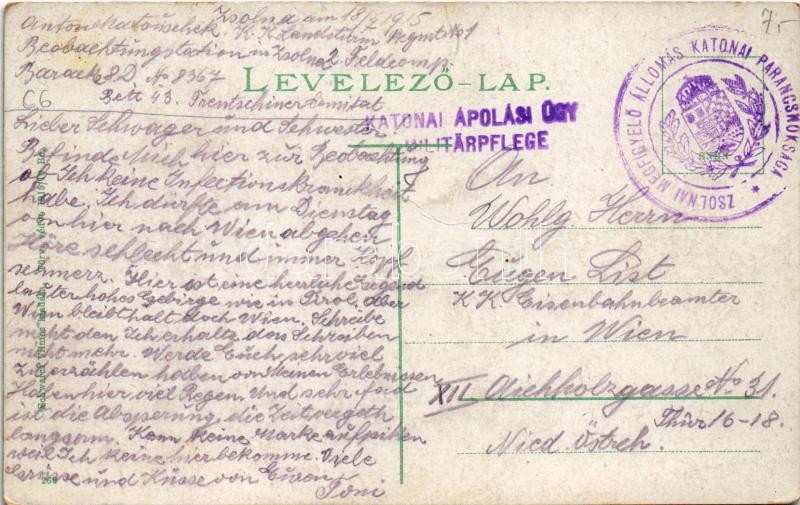 Zsolna am 18/7 1915
Anton Matouschek K.K. Landsturm Regmt No 1
Beobachtungstation in Zsolna 2 Feldcomp.
Barack 8D No 8367
Bett 43. Trentschiner Comitat
C6
7.-
LEVELEZŐ-LAP.
KATONAI ÁPOLÁSI ÜGY
MILITÄRPFLEGE
ZSOLNAI MEGFIGYELŐ ÁLLOMÁS KATONAI PARANCSNOKSÁGA
Lieber Schwager und Schwester
Befinde Mich hier zur Beobachtung
ob Ich keine Infectionskrankheit
habe. Ich durfte am Dienstag
von hier nach Wien abgehen
Höre schlecht und immer Kopf
schmerz. Hier ist eine herrliche Gegend
lauter hohes Gebirge wie in Tirol, aber
Wien bleibt halt doch Wien. Schreibe
nicht den Ich erhalte das Schreiben
nicht mehr. Werde Euch sehr viel
zu erzählen haben von Meinen Erlebnissen
Haben hier viel Regen. Und sehr fad
ist die Absperung, die Zeit vergeth
langsam. Kann keine Marke aufpiken
weil Ich keine hier bekomme. Viele
Grüsse und Küsse von Euren
Toni
An
Wohlg Herrn
Eugen List
K.K. Eisenbahnbeamter
in Wien
XII Aichholzgasse No 31.
Thür 16-18.
Nied Östreh.
269